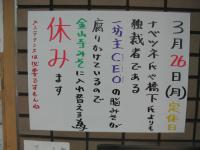 3月26日(月)定休日
ナベツネ氏や橋下氏よりも
独裁者である
坊主CEOの脳みそが
腐りかけているので
金山寺みそに入れ替える為
休みます
メンテナンスは必要ですもんね